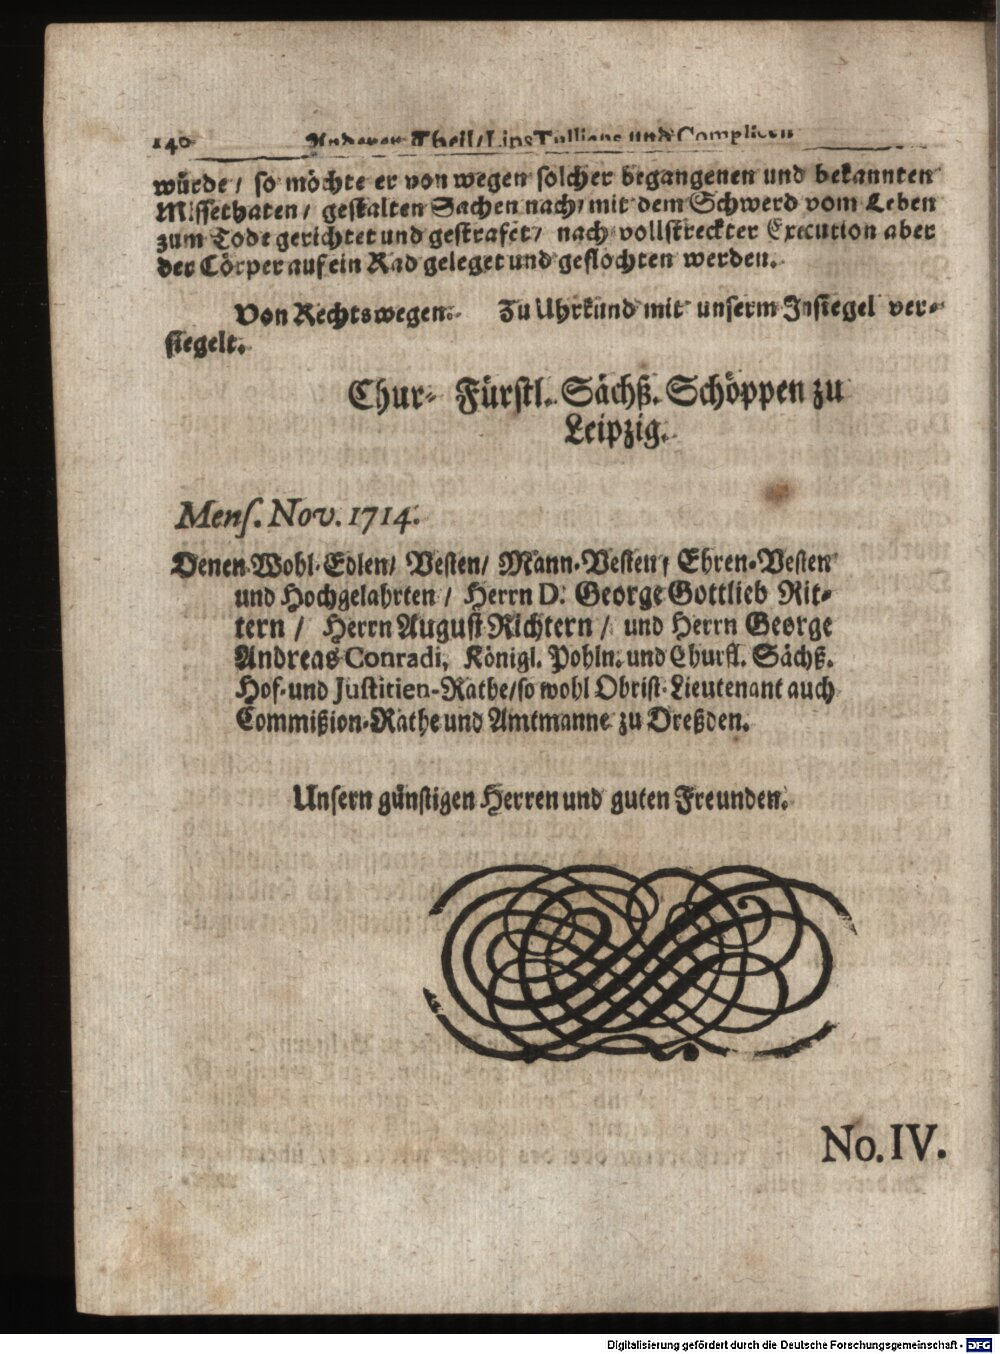 140 Anderer Theil/ Lips Tullians und Complicen
würde/ so möchte er von wegen solcher begangenen und bekannten
Missethaten/ gestalten Sachen nach/ mit dem Schwerd vom Leben
zum Tode gerichtet und gestrafet/ nach vollstreckter Execution aber
der Cörper auf ein Rad geleget und geflochten werden.
Von Rechtswegen. Zu Uhrkund mit unserm Insiegel ver-
siegelt.
Chur- Fürstl. Sächß. Schöppen zu
Leipzig.
Mens. Nov. 1714.
Denen Wohl-Edlen/ Vesten/ Mann-Vesten/ Ehren-Vesten
und Hochgelahrten/ Herrn D. George Gottlieb Rit-
tern/ Herrn August Richtern/ und Herrn George
Andreas Conradi, Königl. Pohln. und Churfl. Sächß.
Hof- und Justitien-Rathe/ so wohl Obrist-Lieutenant auch
Commißion-Rathe und Amtmanne zu Dreßden.
Unsern günstigen Herren und guten Freunden.
No. IV.
Digitalisierung gefördert durch die Deutsche Forschungsgemeinschaft - DFG